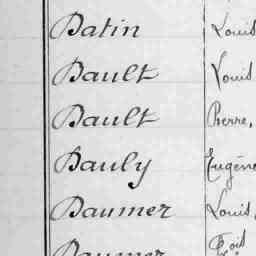 Batin Louis
Bault Louis
Bault Pierre,
Bauly Eugène
Baumer Louis,
Baumer Fçois